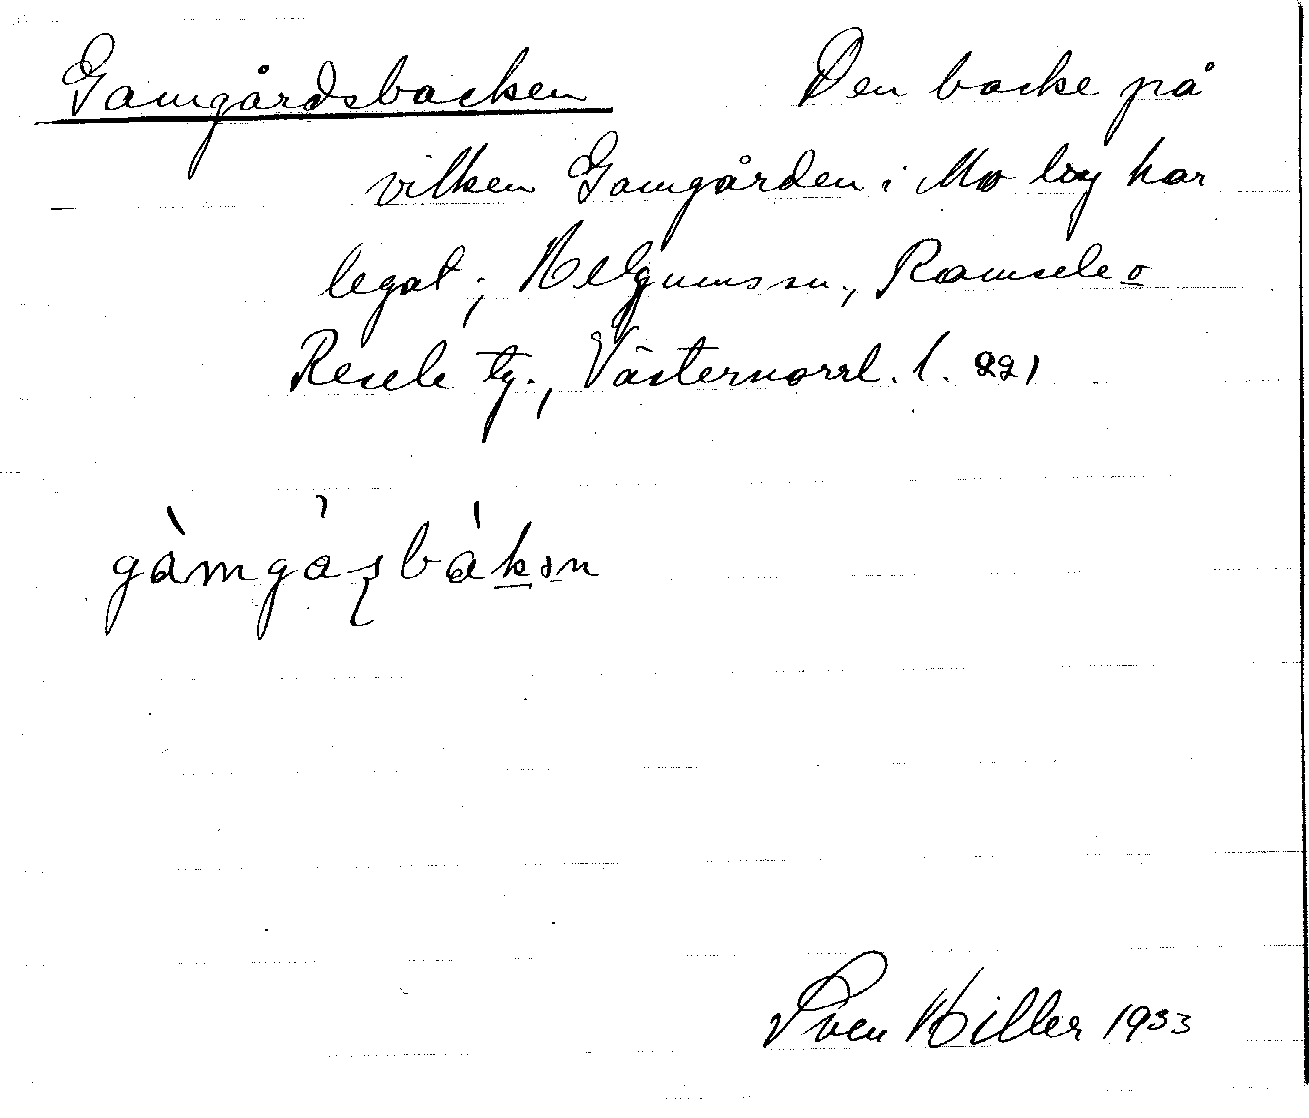 Gamgårdsbacken Den backe på
vilken Gamgården i Mo by har
legat; Helgums sn., Ramsele o
Resele tg., Västernorrl. l. 221
gàmgáʂbákən
Sven Hiller 1933